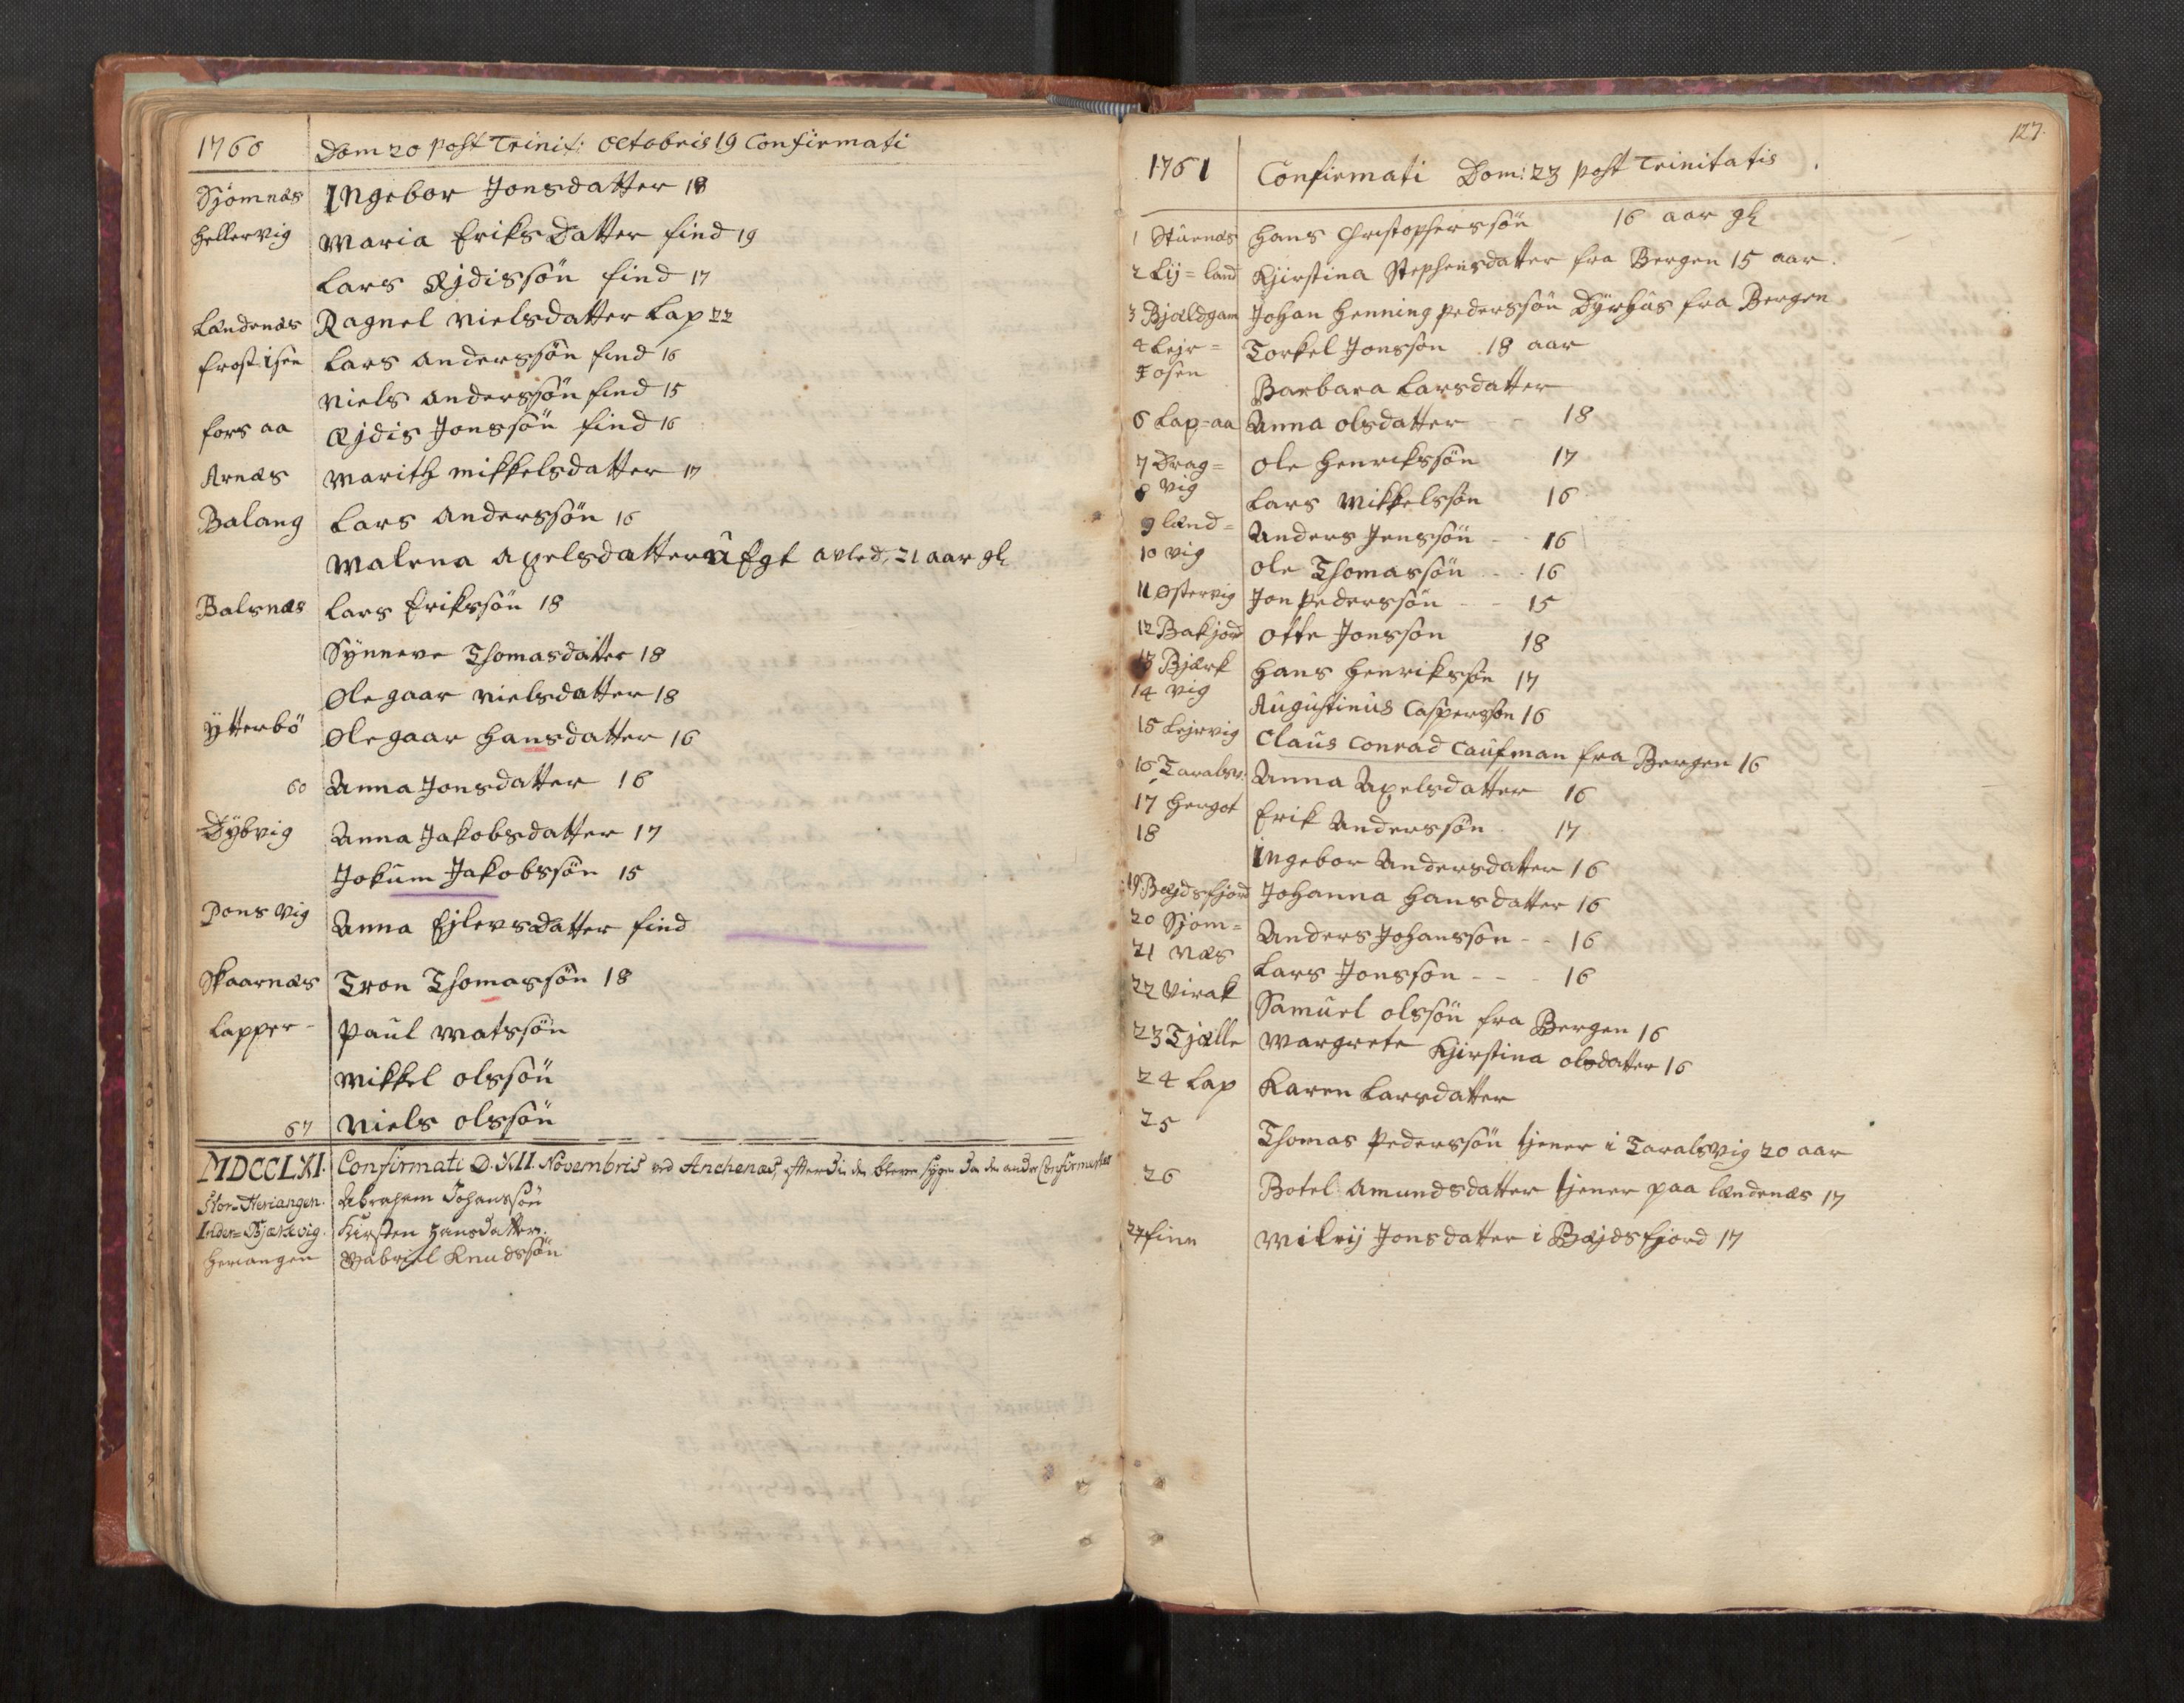 1760 Dom 20 post Trinit: Octobris 19 Confirmati
Sjomnæs Ingebor Jonsdatter 18
Hellervig Maria Eriks Datter find 19
Lars Ejdissøn find 17
Lændenæs Ragnel Nielsdatter Lap 22
Frostisen Lars Anderssøn find 16
Niels Anderssøn find 15
Fors aa Ejdis Jonssøn find 16
Arnæs Marith Mikkelsdatter 17
Balang Lars Anderssøn 16
Malena Apelsdatter uægt avled, 21 aar gl
Balsnæs Lars Erikssøn 18
Synneve Thomasdatter 18
Olegaar Nielsdatter 18
Ytterbö Olegaar Hansdatter 16
60 Anna Jonsdatter 16
Dybvig Anna Jakobsdatter 17
Jokum Jakobssøn 15
Pons vig Anna Ejlevsdatter find
Skaarnæs Tron Thomassøn 18
Lapper- Paul Matssøn
Mikkel Olssøn
67 Niels Olssøn
MDCCLXI. Confirmati D. XII. Novembris ved Anchenæs, efterdi de bleve syge da de andre Confirmertes
Stor-Heriangen. Abraham Johanssøn
Inder-Bjærkvig. Kirsten Hansdatter.
Heriangen Gabriel Knudssøn
127.
1761 Confirmati Dom: 23 post Trinitatis
1 Stuenæs Hans Christopherssøn 16 aar gl
2 Lij=land Kjirstina Stephensdatter fra Bergen 15 aar.
3 Bjældgam Johan Henning Pederssøn Dyrhus fra Bergen
4 Lejr= Torkel Jonssøn 18 aar
5 osen Barbara Larsdatter
6 Lap=aa Anna Olsdatter - 18
7 Drag= Ole Henrikssøn 17
8 vig Lars Mikkelssøn 16
9 Lænd= Anders Jenssøn - - 16
10 vig Ole Thomassøn - - 16
11 Østervig Jon Pederssøn - - 15
12 Bakjord Otte Jonssøn 18
13 Bjærk Hans Henrikssøn 17
14 vig Augustinus Casperssøn 16
15 Lejrvig Claus Conrad Caufman fra Bergen 16
16 Taralsv: Anna Apelsdatter 16
17 Hergot Erik Anderssøn 17
18 Ingebor Andersdatter 16
19 Bejdsfjord Johanna Hansdatter 16
20 Sjom= Anders Johanssøn - - 16
21 Næs Lars Jonssøn - - - 16
22 Virak Samuel Olssøn fra Bergen 16
23 Tjælle Margrete Kjirstina Olsdatter 16
24 Lap Karen Larsdatter
25 Thomas Pederssøn tjener i Taralsvig 20 aar
26 Botel Amundsdatter tjener paa Lændenæs 17
27 finn Milrij Jonsdatter i Bejdsfjord 17